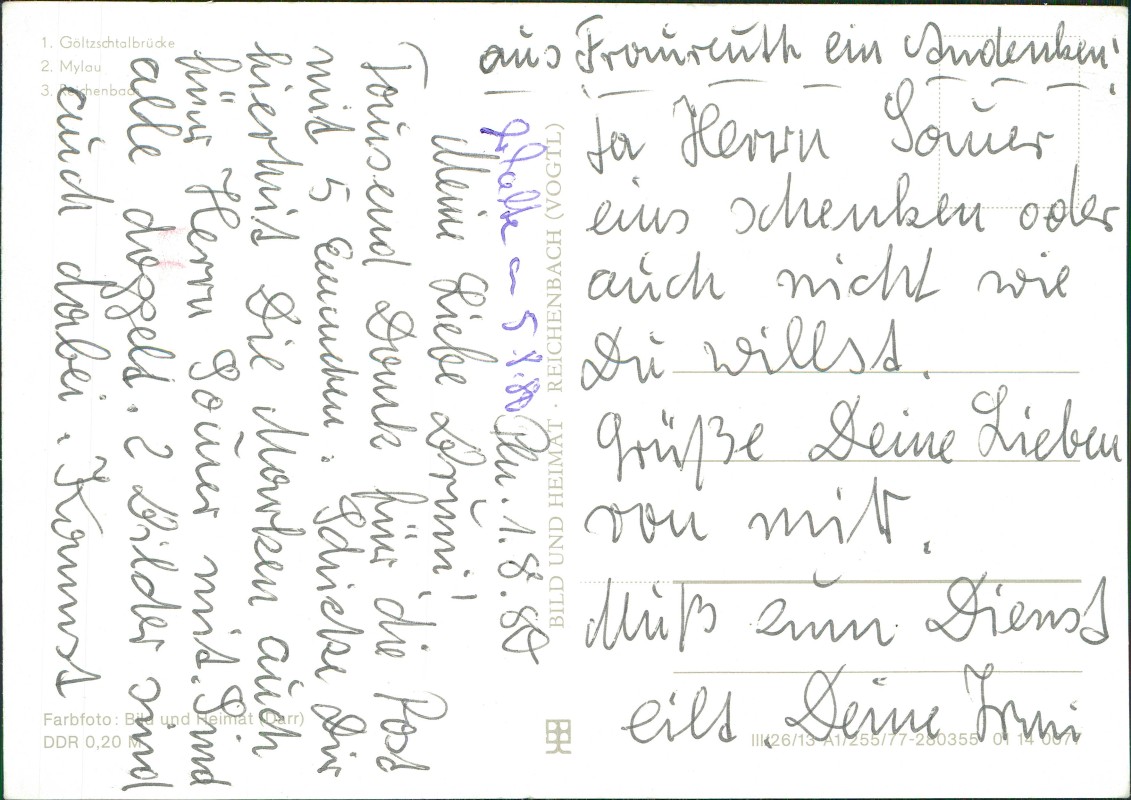 1. Göltzschtalbrücke
2. Mylau
3. Reichenbach
Pln. 1.8.80
Meine Liebe Brüni!
Tausend Dank für die Post
mit 5 Schicke Dir
hiermit Die Marken auch
für Herrn Sauer mit. Sind
alle doppelt. 2 Bilder sind
auch dabei. Kannst
Ja Herrn Sauer
eins schenken oder
auch nicht wie
Du willst.
Grüße Deine Lieben
von mir.
Muß zum Dienst
eilt. Deine Irmi
aus Fraureuth ein Andenken!
5.8.80
BILD UND HEIMAT · REICHENBACH (VOGTL)
Farbfoto: Bild und Heimat (Darr)
DDR 0,20 M
III/26/13 A1/255/77-280355 01 14 0077